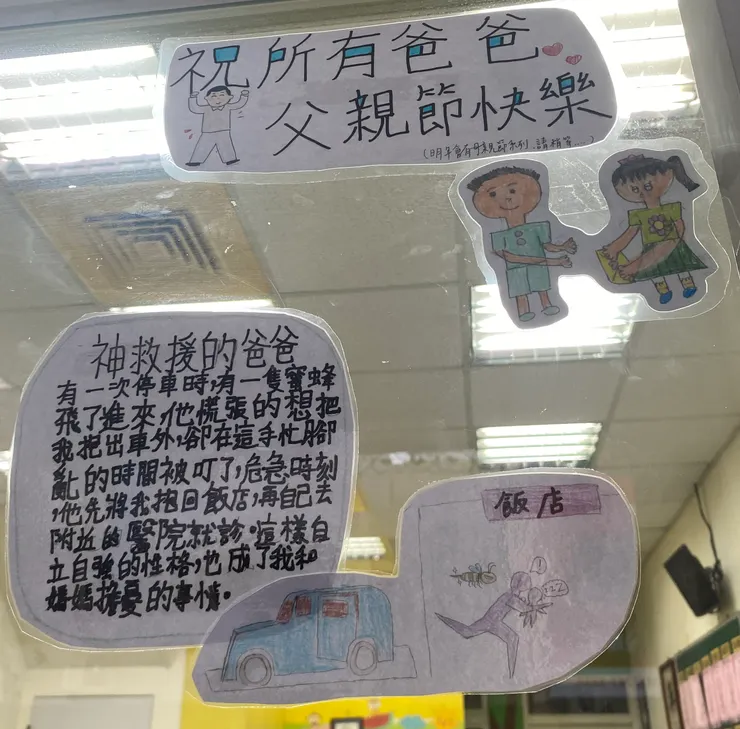 祝所有爸爸
父親節快樂
(明年會有母親節系列,請稍等......)
神救援的爸爸
有一次停車時,有一隻蜜蜂
飛了進來,他慌張的想把
我抱出車外,卻在這手忙腳
亂的時間被叮了,危急時刻
,他先將我抱回飯店,再自己去
附近的醫院就診。這樣自
立自強的性格,也成了我和
媽媽擔憂的事情。
飯店
!
zzZ